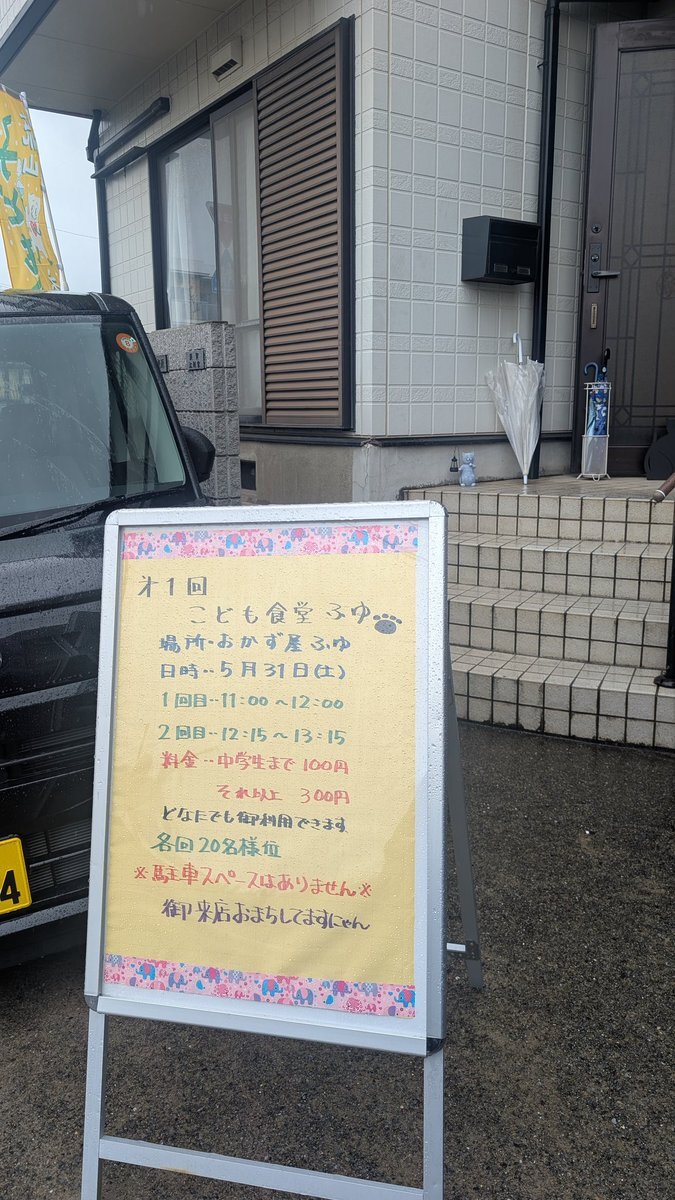 才1回
こども食堂 ふゆ
場所・おかず屋ふゆ
日時‥5月31日(土)
1回目‥11:00〜12:00
2回目‥12:15〜13:15
料金‥中学生まで100円
それ以上 300円
どなたでも御利用できます
各回20名様位
※駐車スペースはありません※
御来店おまちしてますにゃん
4